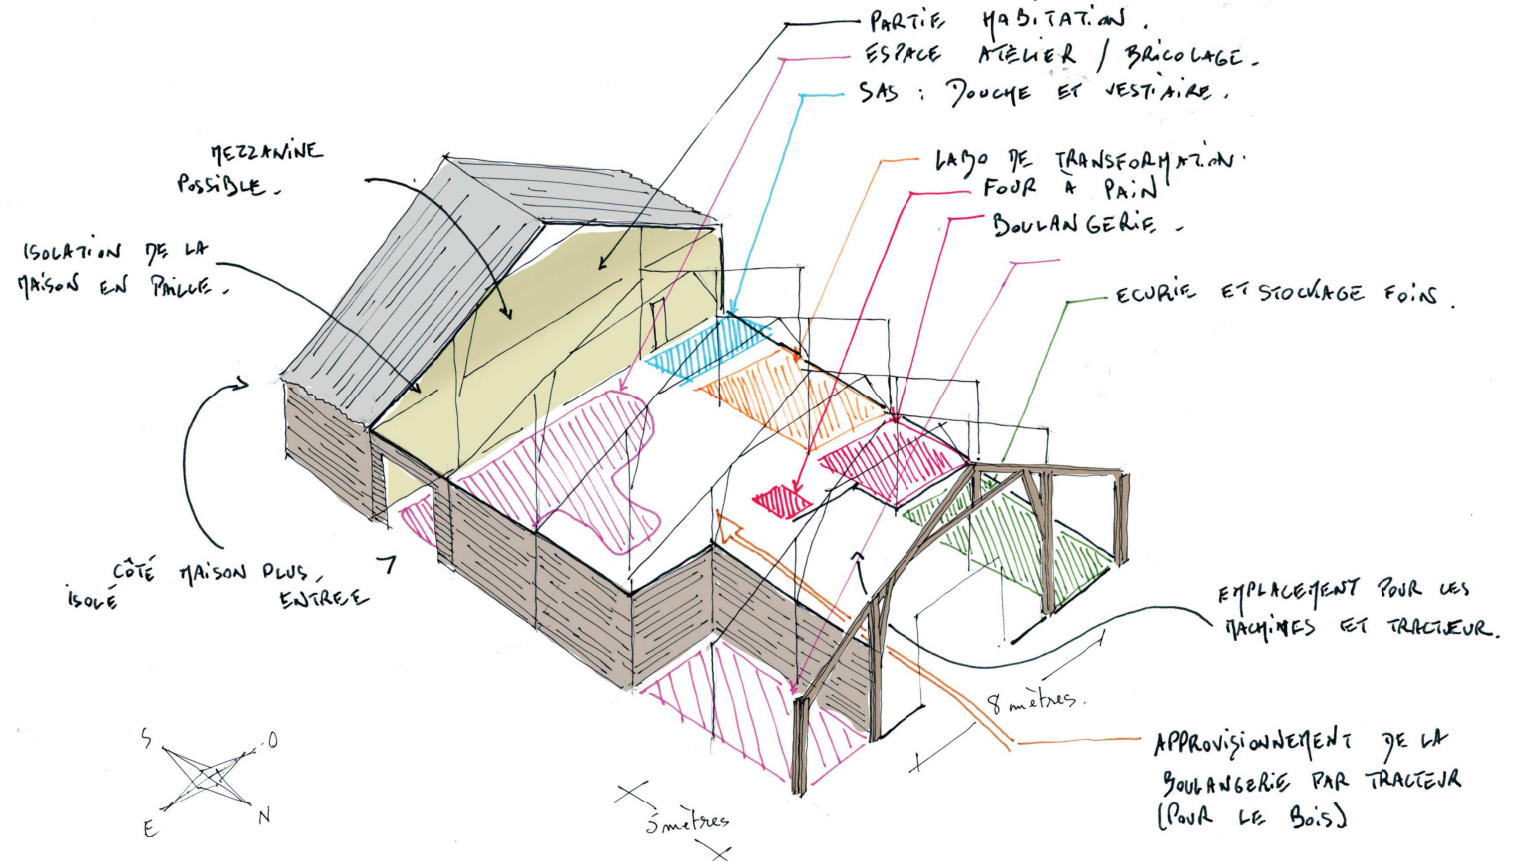 PARTIE HABITATION.
ESPACE ATELIER / BRICOLAGE.
SAS : DOUCHE ET VESTIAIRE.
MEZZANINE
POSSIBLE.
LABO DE TRANSFORMATION.
FOUR À PAIN
BOULANGERIE.
ISOLATION DE LA
MAISON EN PAILLE.
ECURIE ET STOCKAGE FOIN.
CÔTÉ MAISON PLUS
ISOLÉ
ENTREE
EMPLACEMENT POUR LES
MACHINES ET TRACTEUR.
8 mètres.
APPROVISIONNEMENT DE LA
BOULANGERIE PAR TRACTEUR
(POUR LE BOIS)
5 mètres
S
O
E
N